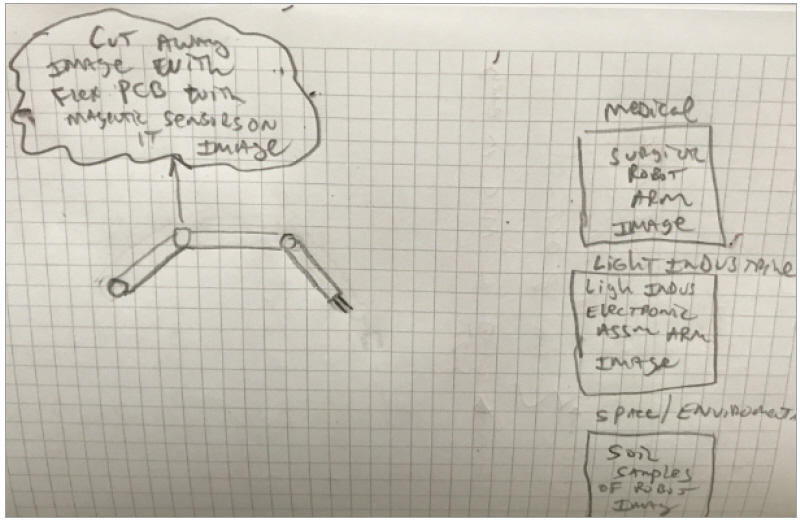 CUT AWAY
IMAGE WITH
FLEX PCB WITH
MAGEUTIC SENSORS ON
IT IMAGE
MEDICAL
SURGICAL
ROBOT
ARM
IMAGE
LIGHT INDUSTRIAL
LIGH INDUS
ELECTRONIC
ASSM ARM
IMAGE
SPACE/ENVIROMENT
SOIL
SAMPLES
OF ROBOT
IMAG